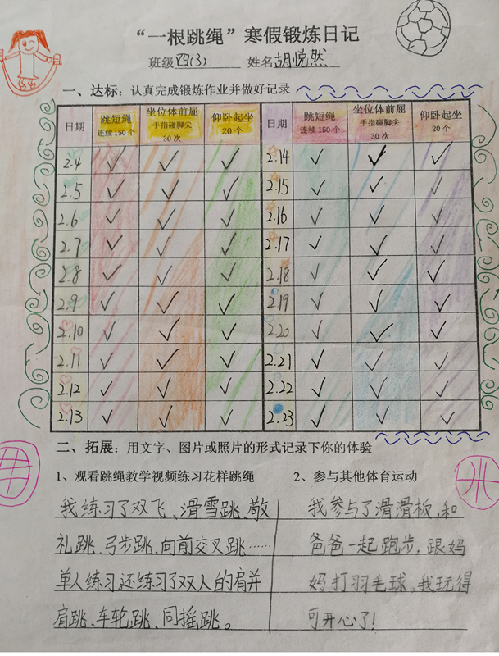 “一根跳绳”寒假锻炼日记
班级四(3) 姓名胡悦然
一、达标：认真完成锻炼作业并做好记录
日期 跳短绳 连续150个 坐位体前屈 手指碰脚尖 30次 仰卧起坐 20个 日期 跳短绳 连续150个 坐位体前屈 手指碰脚尖 30次 仰卧起坐 20个
2.4 ✓ ✓ ✓ 2.14 ✓ ✓ ✓
2.5 ✓ ✓ ✓ 2.15 ✓ ✓ ✓
2.6 ✓ ✓ ✓ 2.16 ✓ ✓ ✓
2.7 ✓ ✓ ✓ 2.17 ✓ ✓ ✓
2.8 ✓ ✓ ✓ 2.18 ✓ ✓ ✓
2.9 ✓ ✓ ✓ 2.19 ✓ ✓ ✓
2.10 ✓ ✓ ✓ 2.20 ✓ ✓ ✓
2.11 ✓ ✓ ✓ 2.21 ✓ ✓ ✓
2.12 ✓ ✓ ✓ 2.22 ✓ ✓ ✓
2.13 ✓ ✓ ✓ 2.23 ✓ ✓ ✓
二、拓展：用文字、图片或照片的形式记录下你的体验
1、观看跳绳教学视频练习花样跳绳
我练习了双飞、滑雪跳、敬
礼跳、弓步跳、向前交叉跳……
单人练习还练习了双人的肩并
肩跳、车轮跳、同摇跳。
2、参与其他体育运动
我参与了滑滑板，和
爸爸一起跑步，跟妈
妈打羽毛球，我玩得
可开心了！